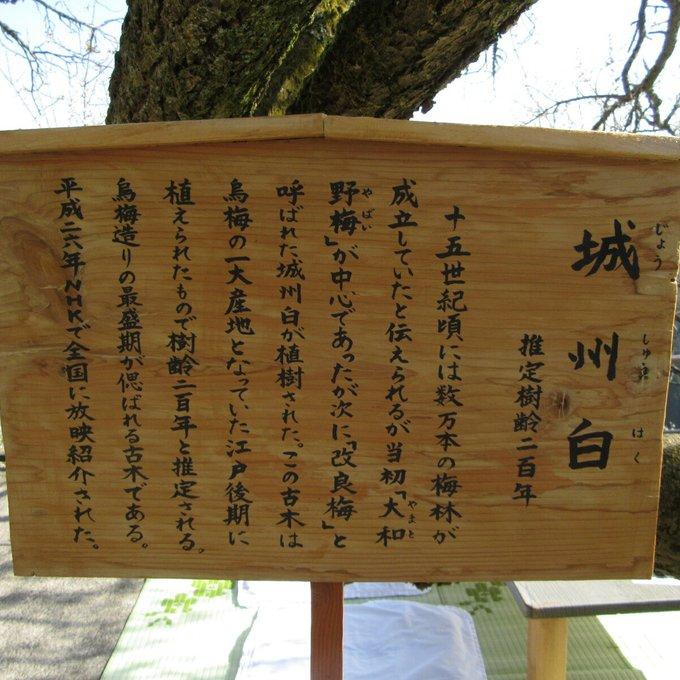 城州白
じょう
しゅう
はく
推定樹齢二百年
十五世紀頃には数万本の梅林が
成立していたと伝えられるが当初「大和
やまと
野梅」が中心であったが次に「改良梅」と
やばい
呼ばれた、城州白が植樹された。この古木は
烏梅の一大産地となっていた江戸後期に
植えられたもので樹齢二百年と推定される。
烏梅造りの最盛期が偲ばれる古木である。
平成二六年NHKで全国に放映紹介された。